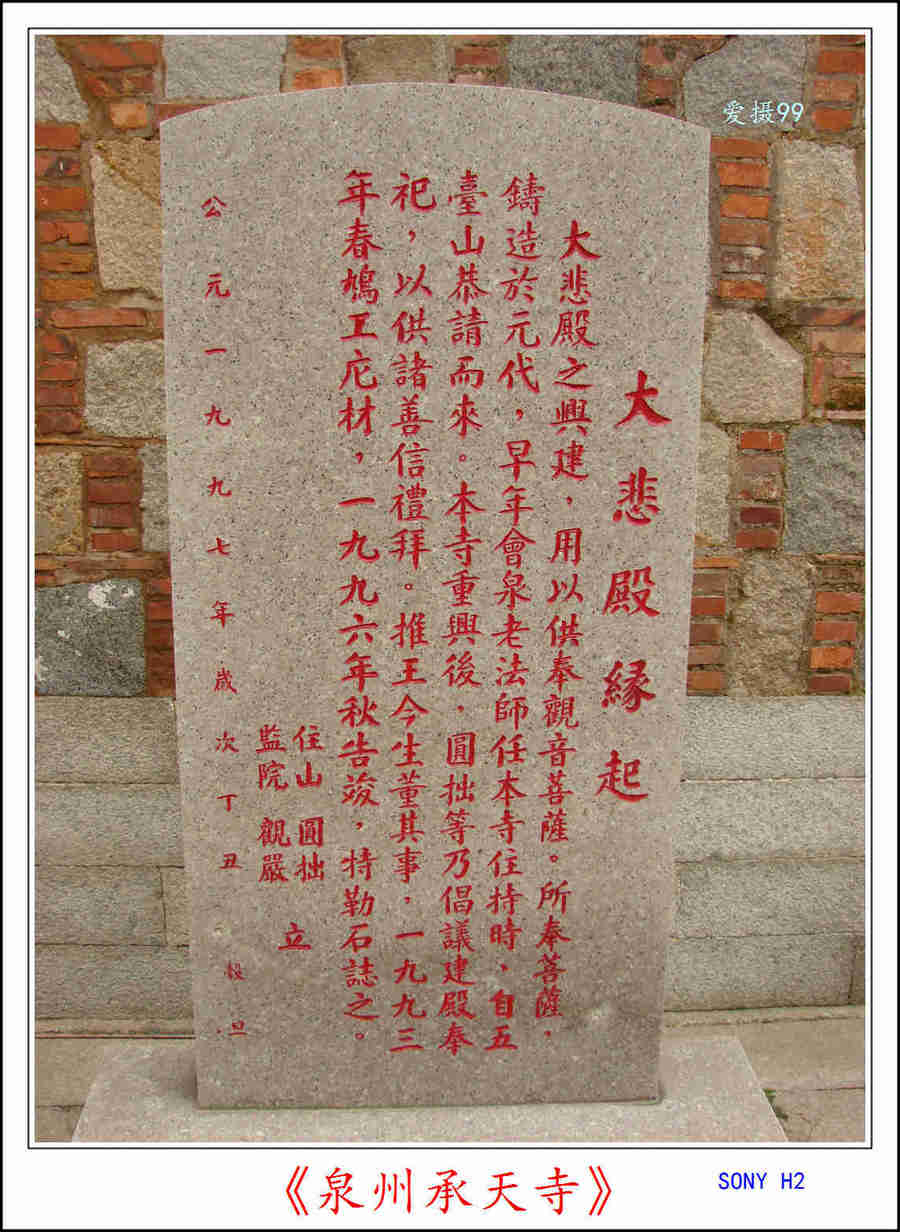 爱摄99
大悲殿緣起
大悲殿之興建，用以供奉觀音菩薩。所奉菩薩，
鑄造於元代，早年會泉老法師任本寺住持時，自五
臺山恭請而來。本寺重興後，圓拙等乃倡議建殿奉
祀，以供諸善信禮拜。推王今生董其事，一九九三
年春鳩工庀材，一九九六年秋告竣，特勒石誌之。
住山 圓拙
監院 觀嚴
立
公元一九九七年歲次丁丑 穀旦
《泉州承天寺》
SONY H2